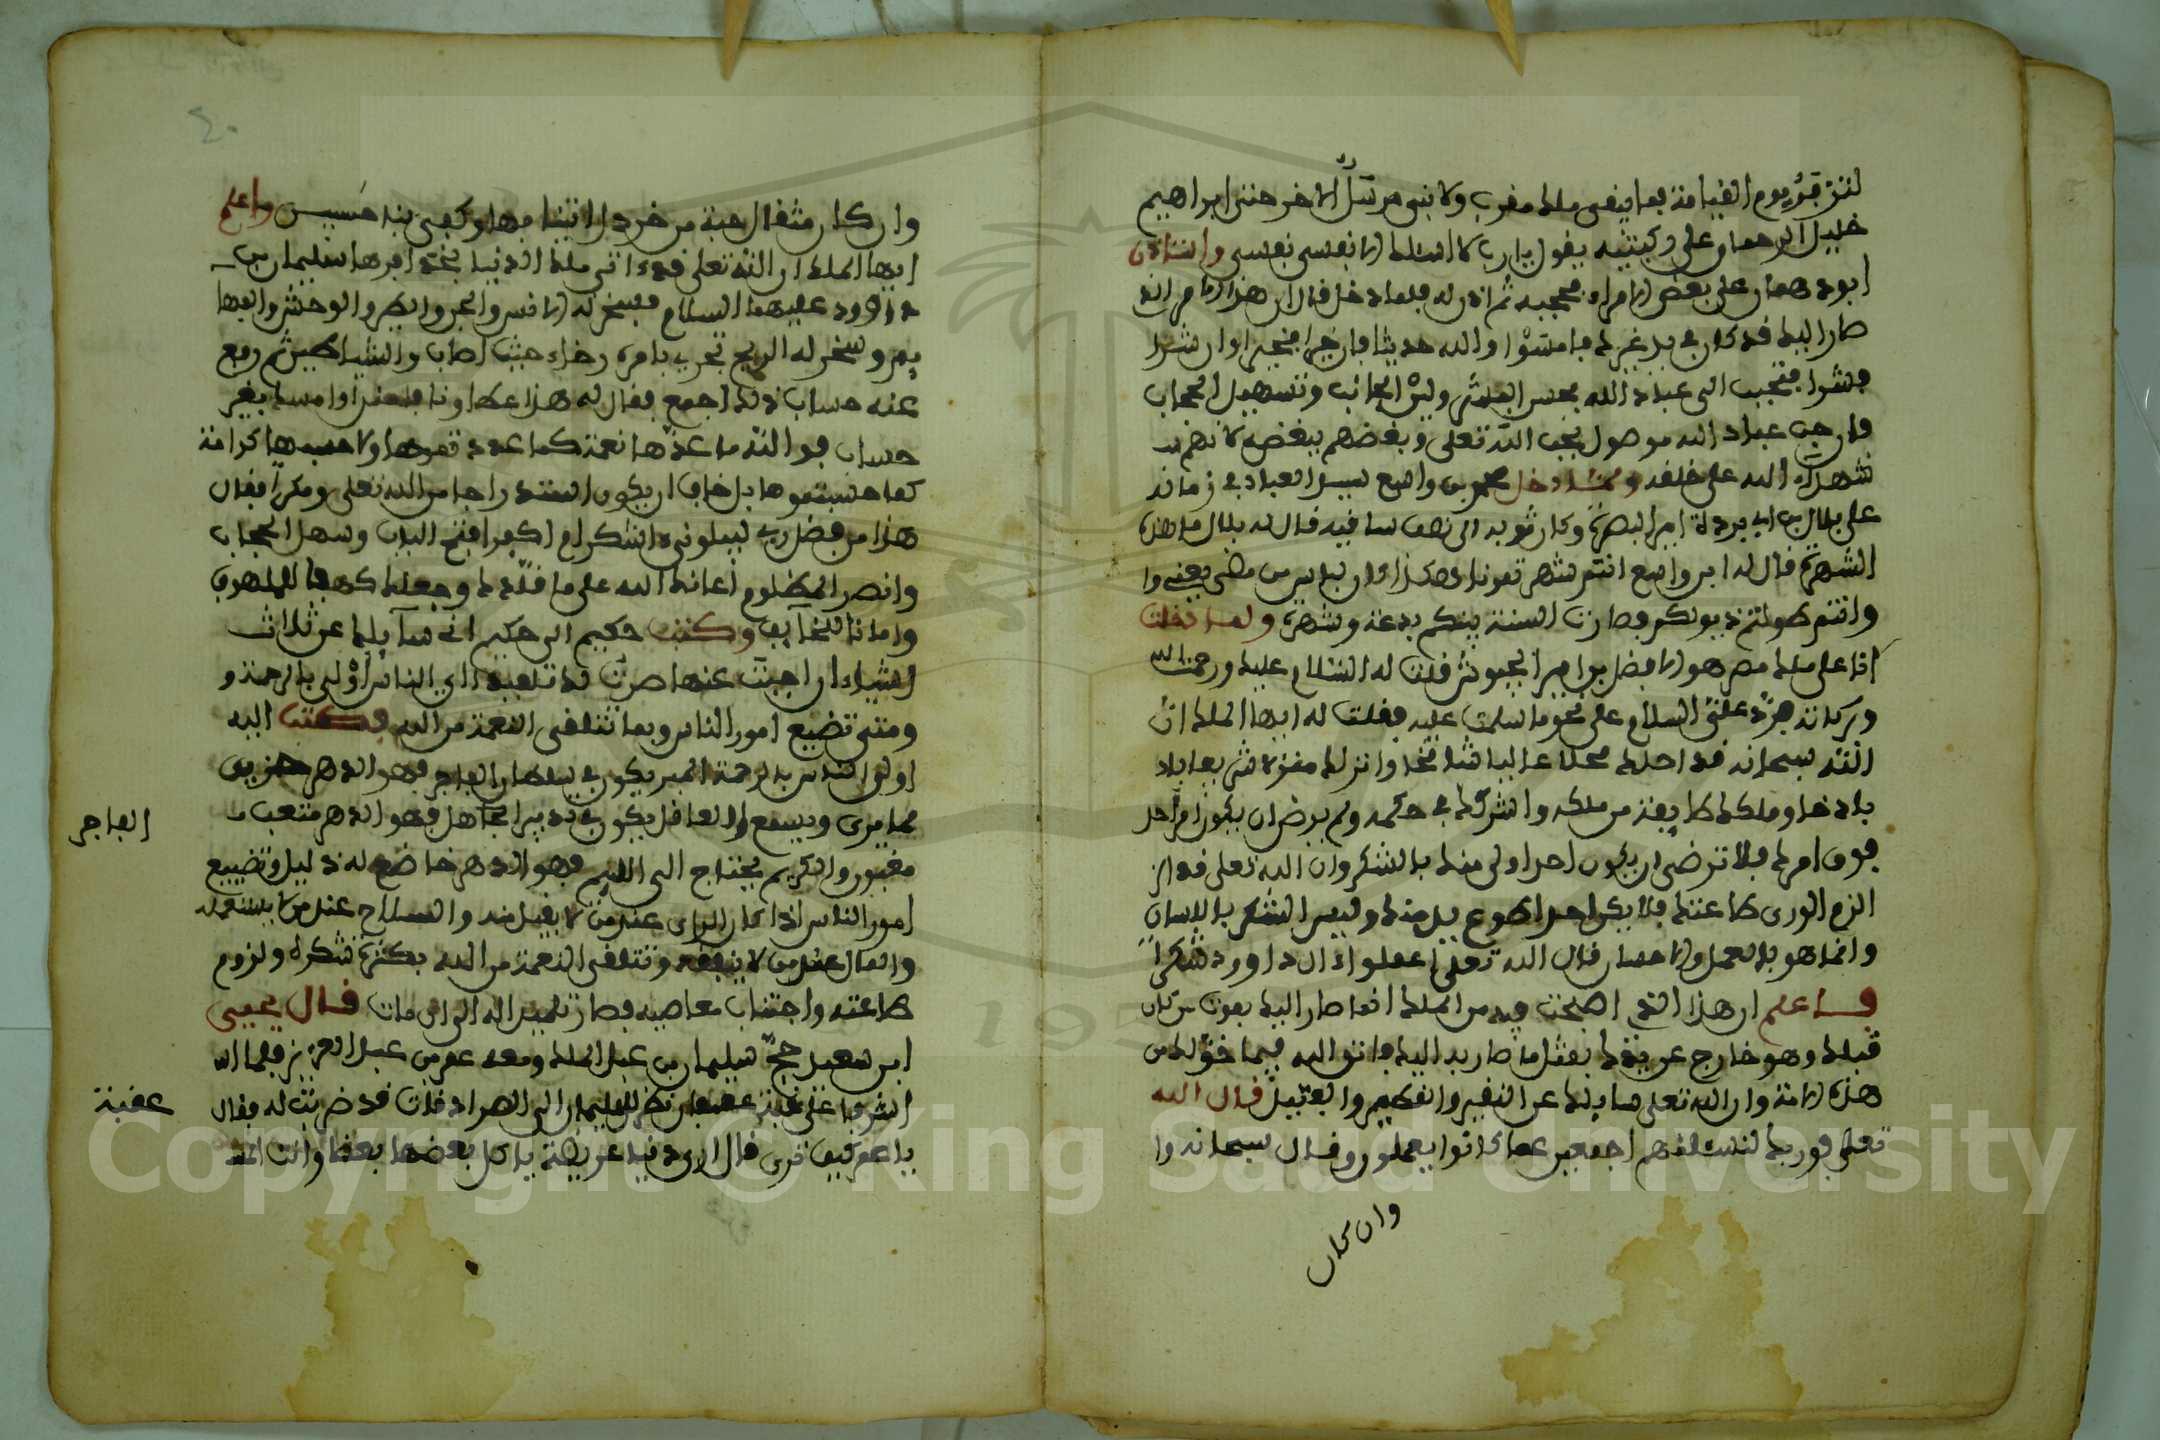 لتزفر يوم القيامة بما يبقى ملك مقرب ولا نبي مرسل الا خر حتى ابراهيم
خليل الرحمان على ركبتيه يقول يا رب لا اسئلك الا نفسي نفسي واستاذن
ابو دهمان على بعض الامراء فحجبه ثم اذن له فلما دخل قال ان هذا الامر الذي
صار اليك قد كان في يد غيرك فامسوا والله حديثا فان خيرا فخيرا وان شرا
فشرا فتحبب الى عباد الله بحسن البشر ولين الجانب وتسهيل الحجاب
فان حب عباد الله موصول بحب الله تعلى وبغضهم ببغضه لانهم
شهداء الله على خلقه ودخل محمد بن واسع سيد العباد في زمانه
على بلال بن ابي بردة امير البصرة وكان ثوبه الى نصف ساقيه فقال له بلال ما هذه
الشهرة فقال له ابن واسع انتم شهرتمونا هكذا كان لباس من مضى
وانتم طولتم ذيولكم فصارت السنة بينكم بدعة وشهرة ولما دخلت
انا على ملك مصر هو الافضل بن امير الجيوش فقلت له السلام عليك ورحمة الله
وبركاته فرد علي السلام على نحو ما سلمت عليه فقلت له ايها الملك ان
الله سبحانه قد احلك محلا عاليا شامخا وانزلك منزلا شريفا
باذخا وملكك طايفة من ملكه واشركك في حكمه ولم يرض ان يكون امر احد
فوق امرك فلا ترضى ان يكون احد اولى منك بالشكر وان الله تعلى قد
الزم الورى طاعتك فلا يكن احد اطوع لله منك وليس الشكر باللسان
وانما هو بالعمل والاحسان قال الله تعلى اعملوا ءال داوود شكرا
فاعلم ان هذا الذي اصبحت فيه من الملك انما صار اليك بموت من كان
قبلك وهو خارج عن يدك بمثل ما صار به اليك فاتق الله فيما خولك من
هذه الامة وان الله تعلى سايلك عن النقير والقطمير والفتيل قال الله
تعلى فوربك لنسئلنهم اجمعين عما كانوا يعملون وقال سبحانه وا
وان كان
وان كان مثقال حبة من خردل اتينا بها وكفى بنا حسبين واعلم
ايها الملك ان الله تعلى قد ءاتى ملك الدنيا بحذافرها سليمان بن
داوود عليهما السلام فسخر له الانس والجن والطير والوحش والبها
يم وسخر له الريح تجري بامره رخاء حيث اصاب والشياطين ثم رفع
عنه حساب ذلك اجمع فقال له هذا عطاونا فامنن او امسك بغير
حساب فو الله ما عدها نعمة كما عددتموها ولا حسبها كرامة
كما حسبتموها بل خاف ان يكون استدراجا من الله تعلى ومكرا فقال
هذا من فضل ربي ليبلوني ءاشكر ام اكفر فافتح الباب وسهل الحجاب
وانصر المظلوم اعانك الله على ما قلدك وجعلك كهفا للملهوف
وامانا للخايف وكتب حكيم الى حكيم اني سايلك عن ثلاث
اشياء ان اجبت عنها صرت لك تلميذا اي الناس اولى بالرحمة و
ومتى تضيع امور الناس وبما تتلقى النعمة من الله فكتب اليه
اولى الناس بالرحمة البر يكون في سلطان الفاجر فهو الدهر حزين
لما يرى ويسمع والعاقل يكون في تدبير الجاهل فهو الدهر متعب
مغموم والكريم يحتاج الى اللئيم فهو الدهر خاضع له ذليل وتضيع
امور الناس اذا كان الراي عند من لا يقبل منه والسلاح عند من لا يستعمله
والمال عند من لا ينفقه وتتلقى النعمة من الله بكثرة شكره ولزوم
طاعته واجتناب معاصيه فصار تلميذا له الى ان مات قال يحيى
ابن سعيد حج سليمان بن عبد الملك ومعه عمر بن عبد العزيز فلما
اشرفا على عقبة عسفان نظر سليمان الى السرادقات قد ضربت له فقال
يا عمر كيف ترى قال ارى دنيا عريضة ياكل بعضها بعضا وانت
الفاجر
عقبة